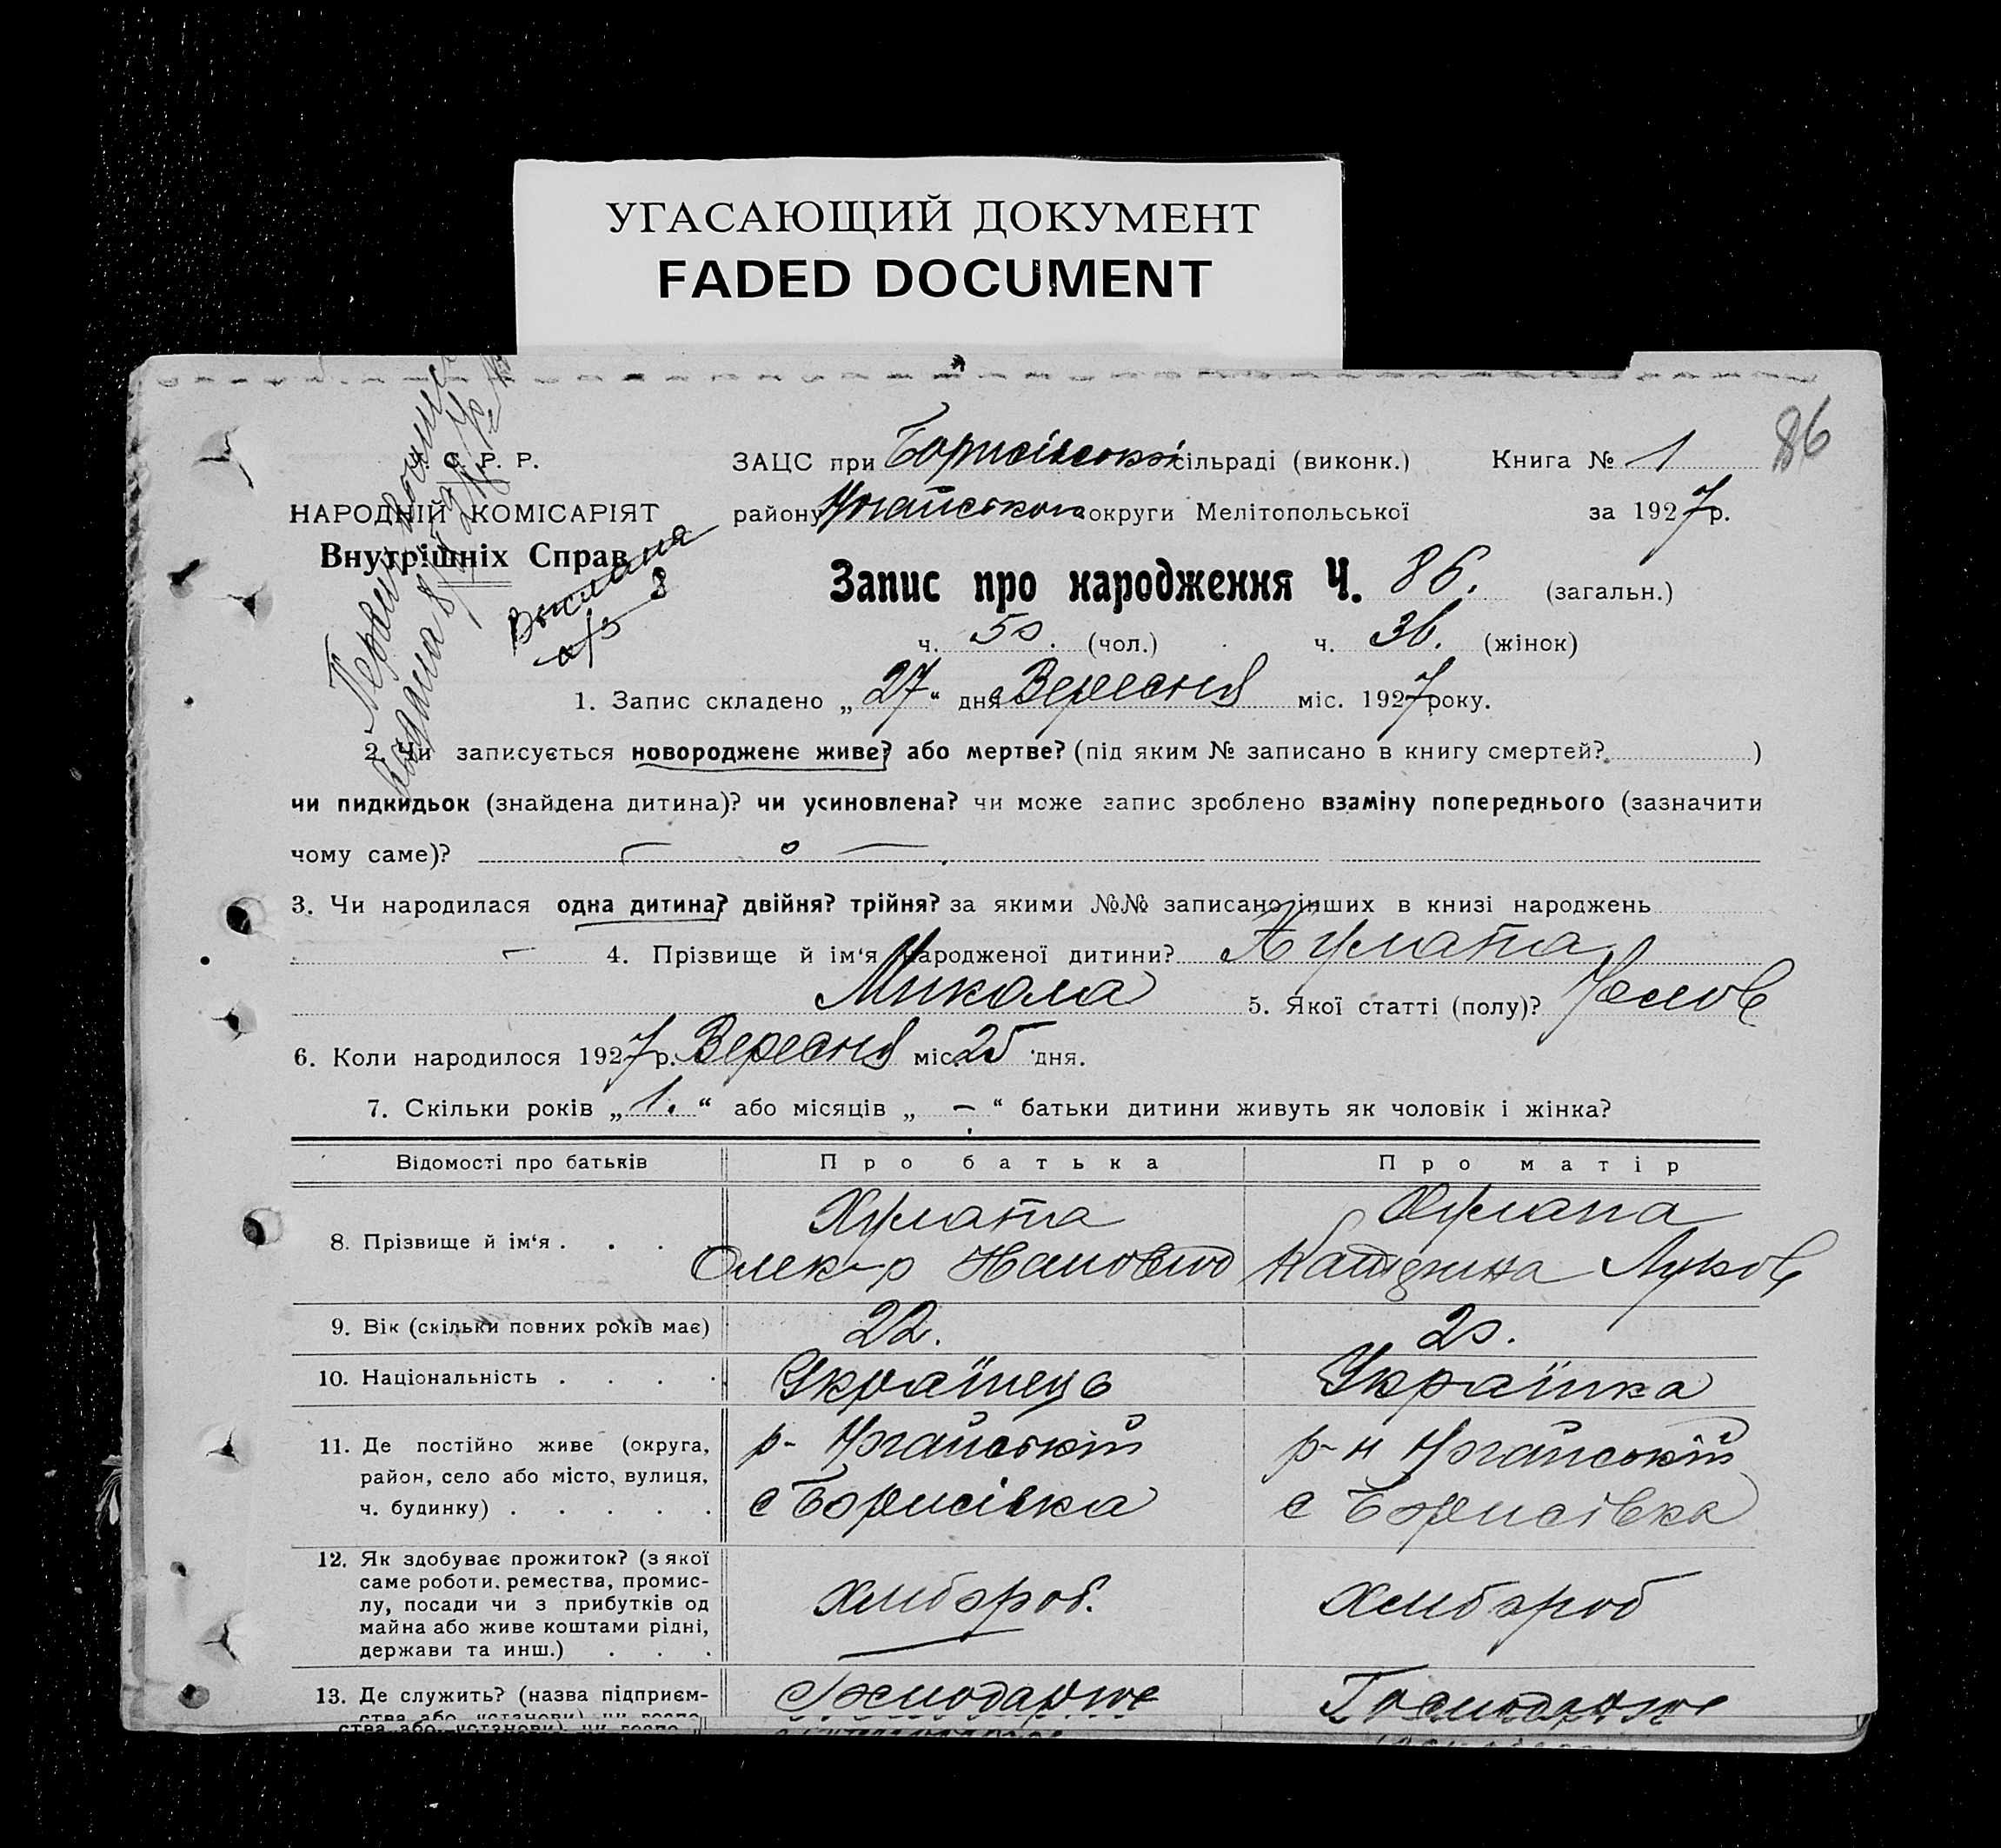 УГАСАЮЩИЙ ДОКУМЕНТ
FADED DOCUMENT
86
С. Р. Р.
НАРОДНІЙ КОМІСАРІЯТ
Внутрішніх Справ
ЗАЦС при Борисівській сільраді (виконк.) Книга № 1
району Ногайського округи Мелітопольської за 1927 р.
Запис про народження Ч. 86. (загальн.)
ч. 50. (чол.) ч. 36. (жінок)
1. Запис складено „ 27 “ дня Вересня міс. 1927 року.
2. Чи записується новороджене живе? або мертве? (під яким № записано в книгу смертей? )
чи пидкидьок (знайдена дитина)? чи усиновлена? чи може запис зроблено взаміну попереднього (зазначити
чому саме)? — о —
3. Чи народилася одна дитина? двійня? трійня? за якими №№ записано інших в книзі народжень
— 4. Прізвище й ім‘я народженої дитини?
Микола 5. Якої статті (полу)? Челов
6. Коли народилося 1927 р. Вересня міс. 25 дня.
7. Скільки років „ 1. “ або місяців „ — “ батьки дитини живуть як чоловік і жінка?
Відомості про батьків Про батька Про матір
8. Прізвище й ім‘я . . . .
Олек-р
9. Вік (скільки повних років має) 22. 20.
10. Національність . . . . Українець Українка
11. Де постійно живе (округа, р- Ногайський р-н Ногайський
район, село або місто, вулиця,
ч. будинку) . . . . . с Борисівка с Борисівка
12. Як здобуває прожиток? (з якої
саме роботи. ремества, промис-
лу, посади чи з прибутків од Хлибороб. Хлибороб
майна або живе коштами рідні,
держави та инш.) . . .
13. Де служить? (назва підприєм-
ства або установи) чи госпо-
ства або установи) чи госпо-